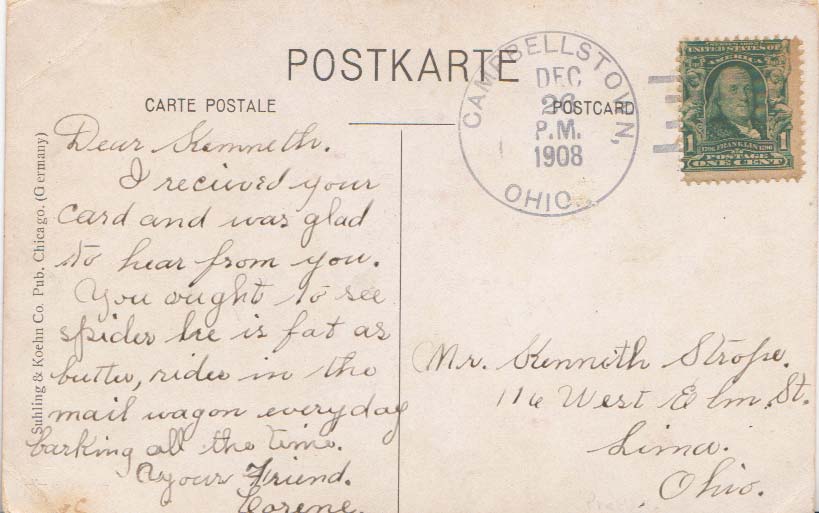 POSTKARTE
CARTE POSTALE
POSTCARD
CAMPBELLSTOWN,
DEC
26
P.M.
1908
OHIO.
UNITED STATES OF
AMERICA
1 1
1706 FRANKLIN 1790
POSTAGE
ONE CENT
Suhling & Koehn Co. Pub. Chicago. (Germany)
Dear Kenneth.
I recieved your
card and was glad
to hear from you.
You ought to see
spider he is fat as
butter, rides in the
mail wagon everyday
barking all the time.
Your Friend.
Corene.
Mr. Kenneth Strope.
116 West Elm. St.
Lima.
Ohio.